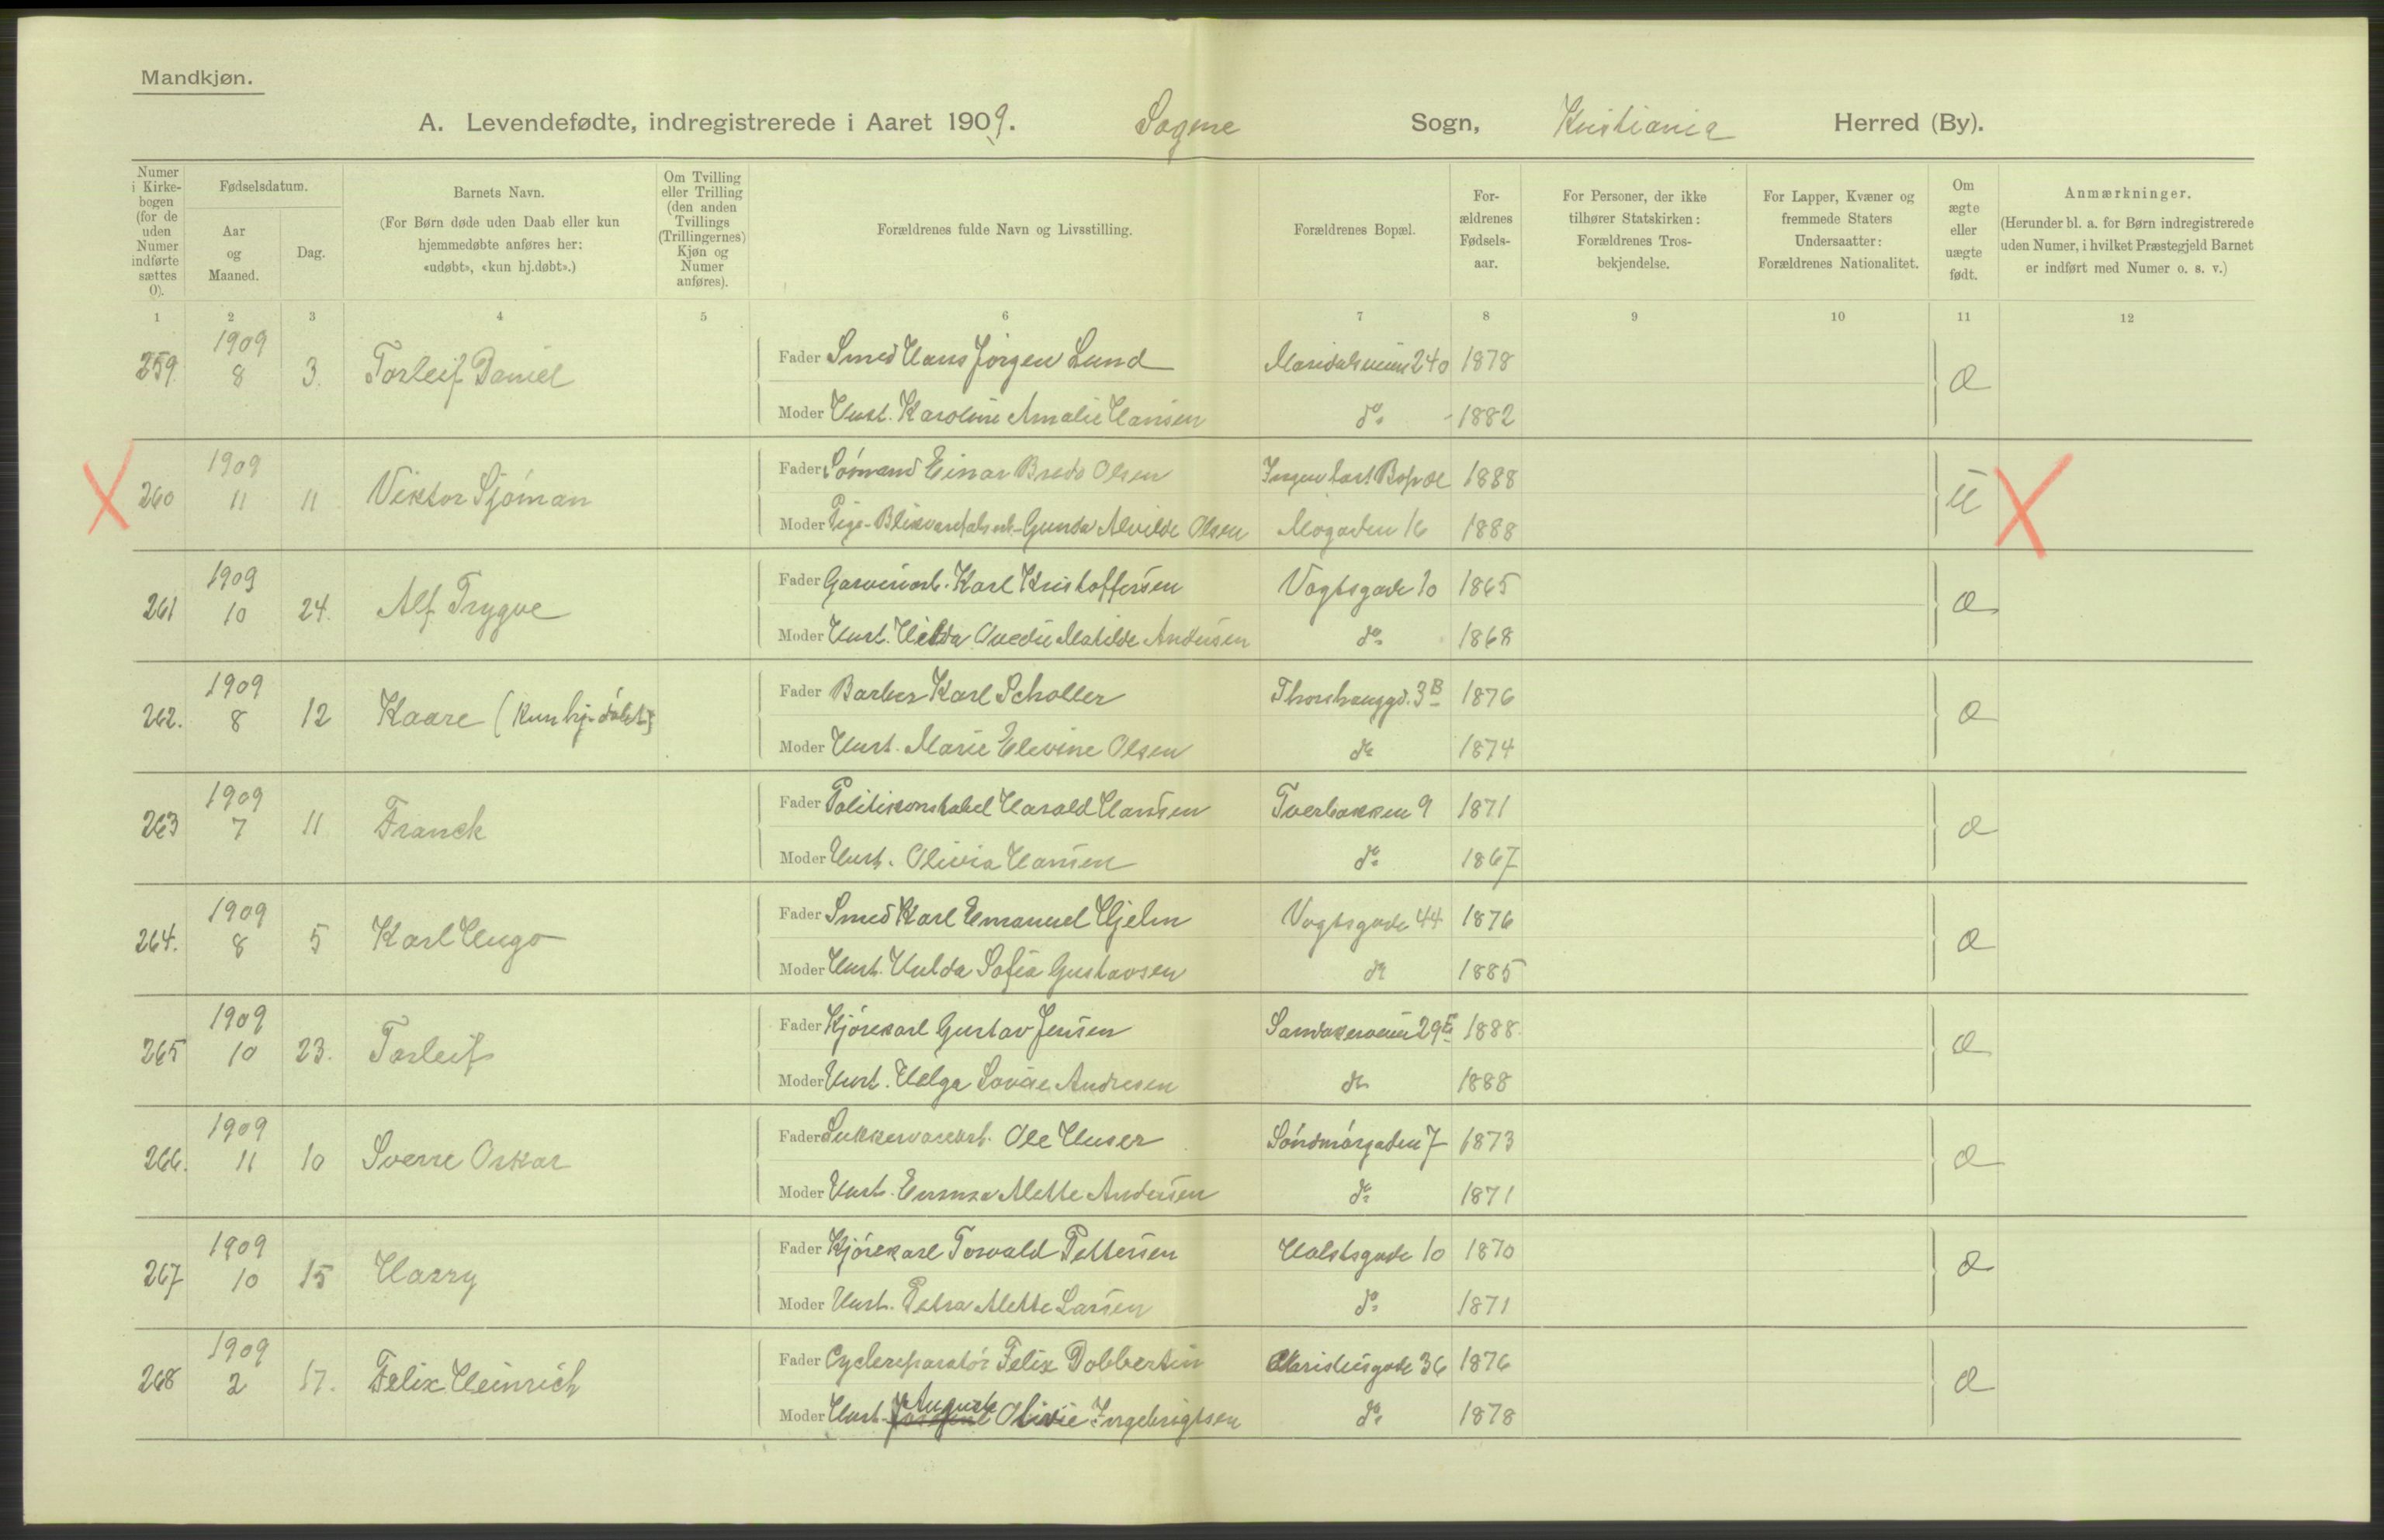 Mandkjøn.
A. Levendefødte, indregistrerede i Aaret 1909. Sagene Sogn, Kristiania Herred (By).
Numer i Kirkebogen (for de uden Numer indførte sættes 0).
Fødselsdatum.
Aar og Maaned.
Dag.
Barnets Navn.
(For Børn døde uden Daab eller kun hjemmedøbte anføres her: «udøbt», «kun hj.døbt».)
Om Tvilling eller Trilling (den anden Tvillings (Trillingernes) Kjøn og Numer anføres).
Forældrenes fulde Navn og Livsstilling.
Forældrenes Bopæl.
Forældrenes Fødselsaar.
For Personer, der ikke tilhører Statskirken: Forældrenes Trosbekjendelse.
For Lapper, Kvæner og fremmede Staters Undersaatter: Forældrenes Nationalitet.
Om ægte eller uægte født.
Anmærkninger.
(Herunder bl. a. for Børn indregistrerede uden Numer, i hvilket Præstegjeld Barnet er indført med Numer o. s. v.)
1 2 3 4 5 6 7 8 9 10 11 12
259. 1909 8 3. Torleif Daniel Fader Smed Hans Jørgen Lund Maridalsveien 240 1878 Æ
Moder Hust. Karoline Amalie Hansen do 1882
260 1909 11 11 Viktor Sjøman Fader Sømand Einar Bredo Olsen Ingen fast Bopæl 1888 U
Moder Pige - Gunda Alvilde Olsen Mogaden 16 1888
261 1909 10 24. Alf Trygve Fader Garveriarb. Karl Kristoffersen Vogtsgade 10 1865 Æ
Moder Hust. Hilda Matilde Andersen do 1868
262. 1909 8 12 Kaare (kun hj-døbt) Fader Barber Karl Scholler Thorshauggd. 3B 1876 Æ
Moder Hust. Marie Elevine Olsen do 1874
263 1909 7 11 Franck Fader Politikonstabel Harald Hansen Tverbakken 9 1871 Æ
Moder Hust. Olivia Hansen do 1867
264. 1909 8 5 Karl Hugo Fader Smed Karl Emanuel Hjelm Vogtsgade 44 1876 Æ
Moder Hust. Hulda Sofia Gustavsen do 1885
265 1909 10 23. Torleif Fader Kjørekarl Gustav Jensen Sandakerveien 29E 1888 Æ
Moder Hust. Helga Lovise Andresen do 1888
266. 1909 11 10 Sverre Oskar Fader Ole Huser Søndmørgaden 7 1873 Æ
Moder Hust. Emma Alette Andersen do 1871
267 1909 10 15 Harry Fader Kjørekarl Torvald Pettersen Holstsgade 10 1870 Æ
Moder Hust. Petra Alette Larsen do 1871
268 1909 2 17. Felix Heinrich Fader Cyclereparatør Felix Dobbertin Claristiesgade 36 1876 Æ
Moder Hust. Auguste Olivie Ingebrigtsen do 1878